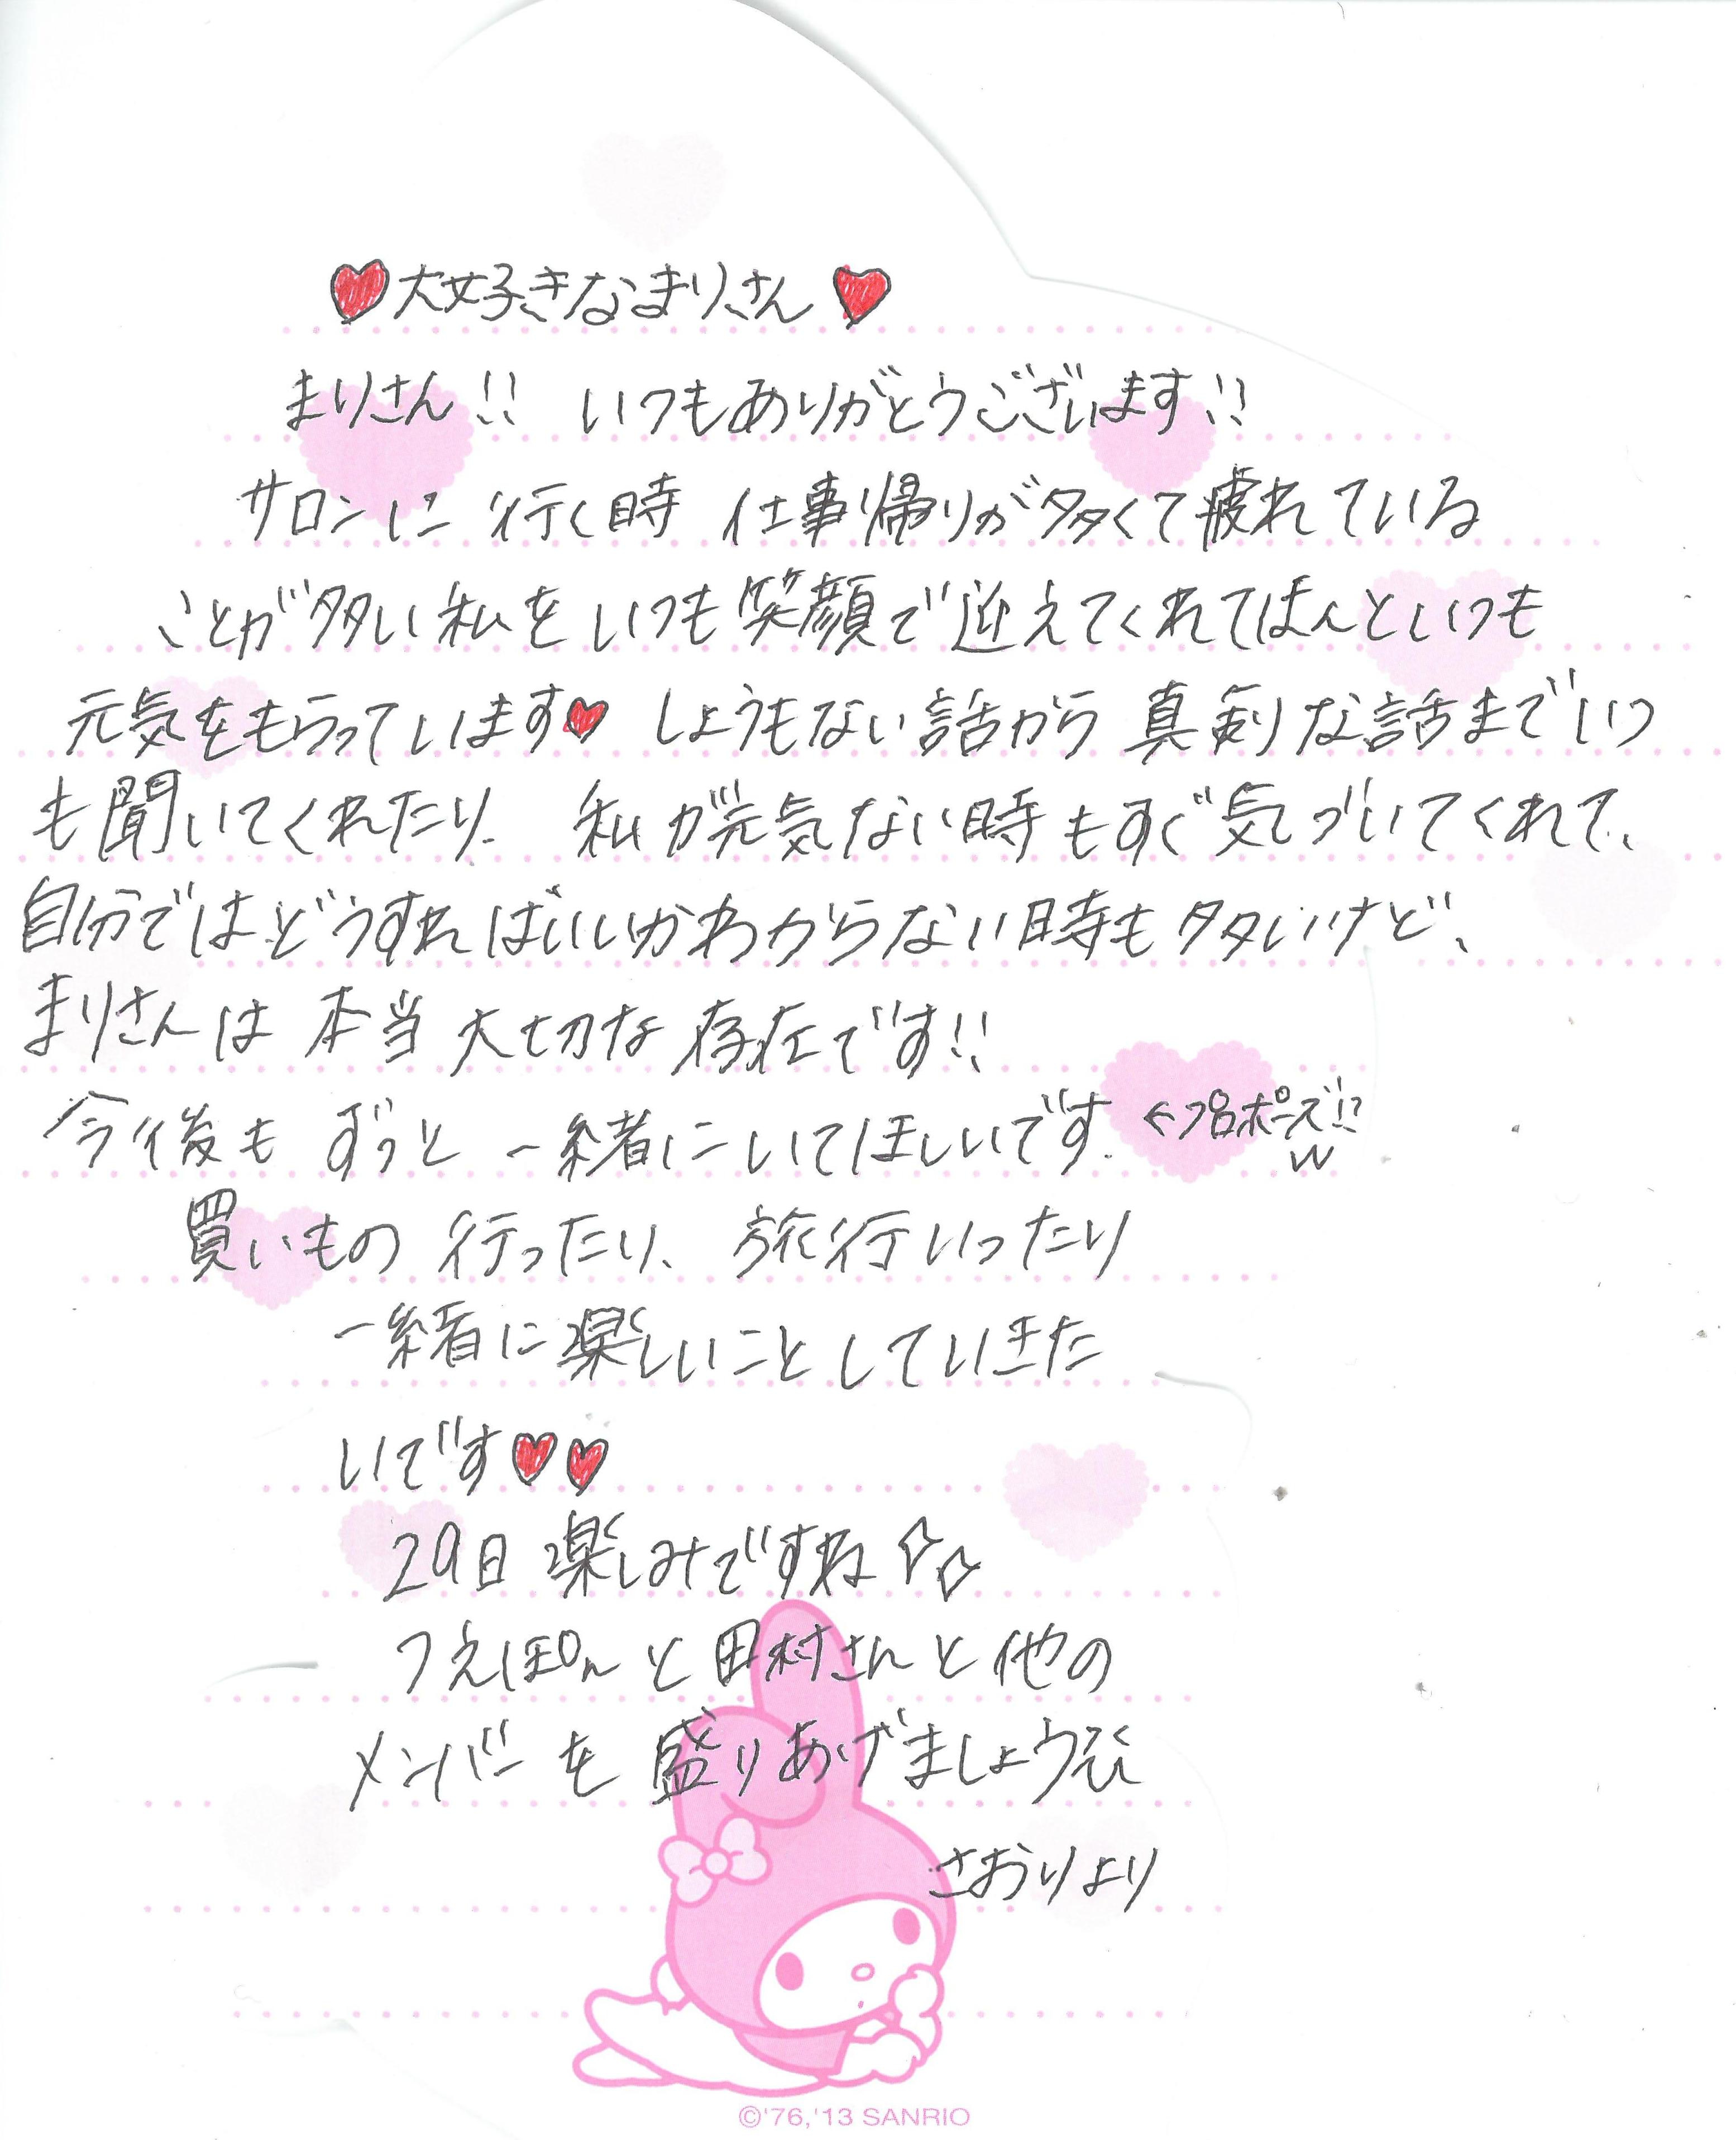 ♥大好きなまりさん♥
まりさん!! いつもありがとうございます!!
サロンに行く時 仕事帰りが多くて疲れている
ことが多い私をいつも笑顔で迎えてくれてほんといつも
元気をもらっています♥ しょうもない話から真剣な話までいつ
も聞いてくれたり、私が元気ない時もすぐ気づいてくれて、
自分ではどうすればいいかわからない時も多いけど、
まりさんは本当大切な存在です!!
今後もずっと一緒にいてほしいです。←プロポーズ!?w
買いもの行ったり、旅行いったり
一緒に楽しいことしていきた
いです♥♥
29日楽しみですね☆☆
つえぽんと田村さんと他の
メンバーを盛りあげましょう
さおりより
©'76,'13 SANRIO